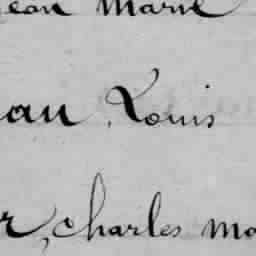 ean Marie
au, Louis
r, charles ma